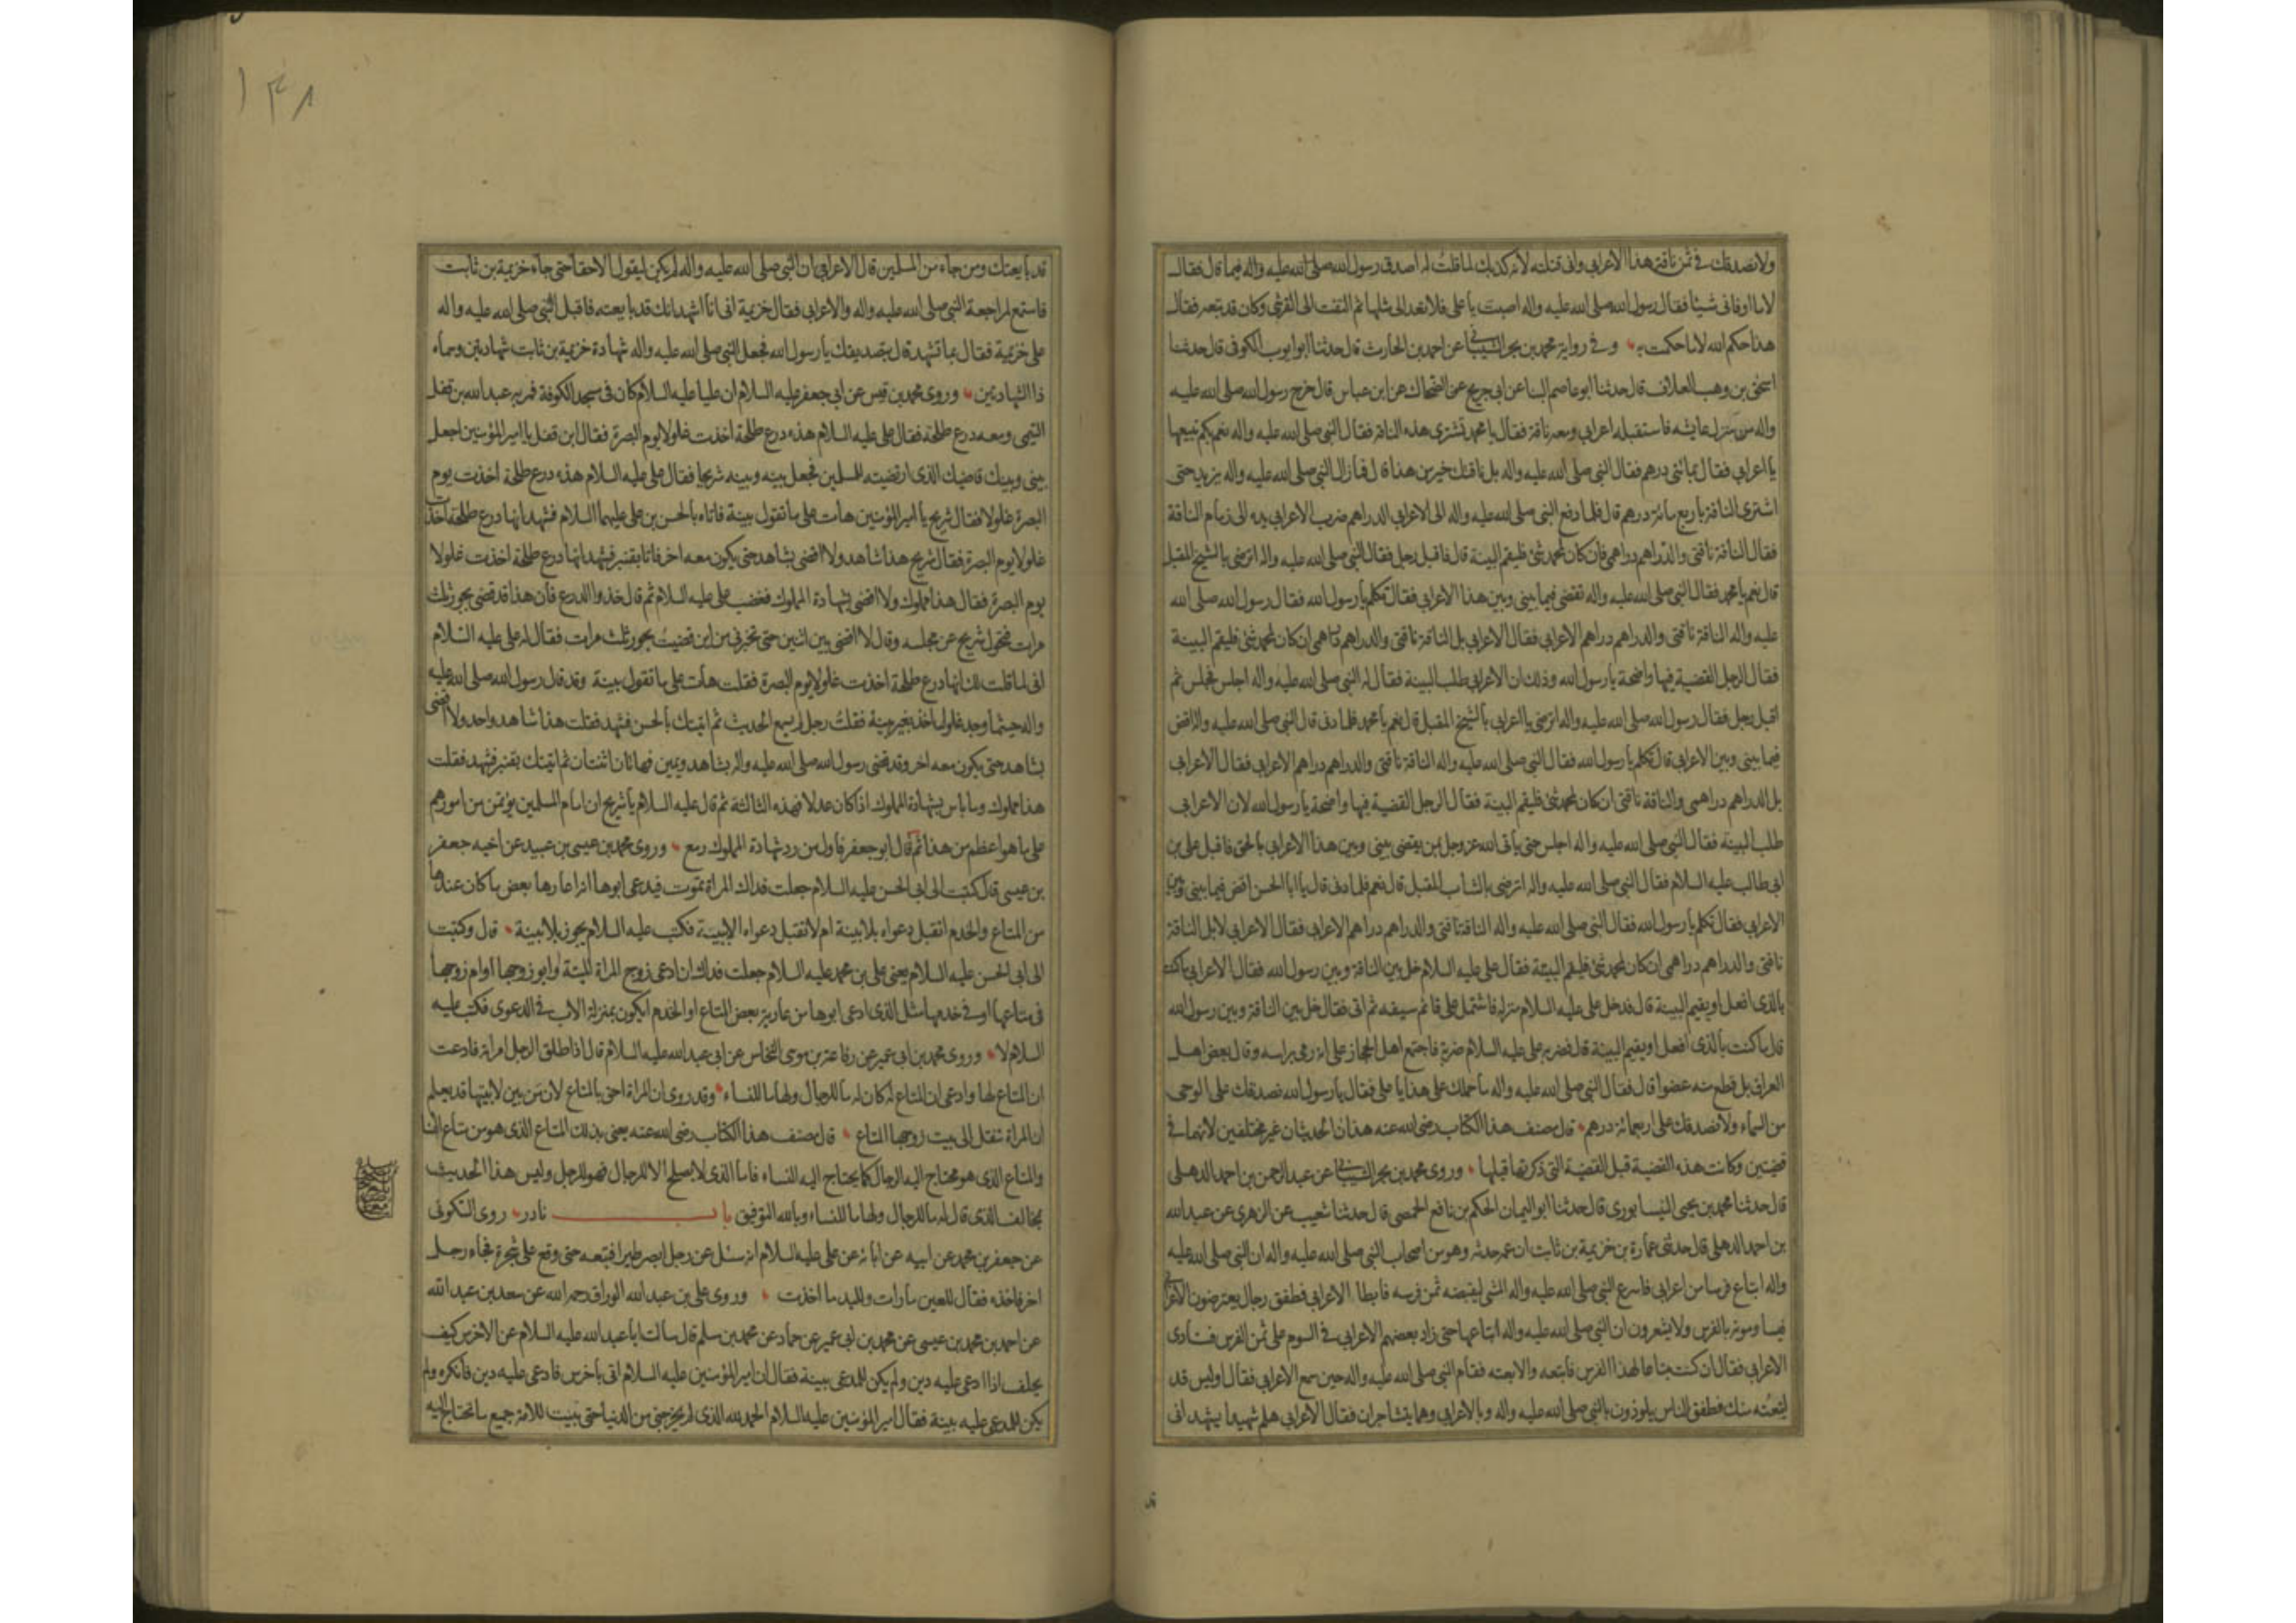 ولا نصدقك في ثمن ناقة هذا الاعرابي واني قتلته لانه كذبك لما قلت له اصدق رسول الله صلى الله عليه واله فيما قال فقال
لا ما اوفاني شيئا فقال رسول الله صلى الله عليه واله اصبت يا علي فلا تعد الى مثلها ثم التفت الى القرشي وكان قد تبعه فقال
هذا حكم الله لا ما حكمت به وفي رواية محمد بن بحر الشيباني عن احمد بن الحارث قال حدثنا ابو ايوب الكوفي قال حدثنا
اسحق بن وهب العلاف قال حدثنا ابو عاصم النبا عن ابي جريج عن الضحاك عن ابن عباس قال خرج رسول الله صلى الله عليه
واله من منزل عايشه فاستقبله اعرابي ومعه ناقة فقال يا محمد تشترى هذه الناقة فقال النبي صلى الله عليه واله نعم بكم تبيعها
يا اعرابي فقال بمائتي درهم فقال النبي صلى الله عليه واله بل ناقتك خير من هذا قال فما زال النبي صلى الله عليه واله يزيد حتى
اشترى الناقة باربع مائة درهم قال فلما دفع النبي صلى الله عليه واله الى الاعرابي الدراهم ضرب الاعرابي يده الى زمام الناقة
فقال الناقة ناقتي والدراهم دراهمي فان كان لمحمد شئ فليقم البينة قال فاقبل رجل فقال النبي صلى الله عليه واله اترضى بالشيخ المقبل
قال نعم يا محمد فقال النبي صلى الله عليه واله تقضي فيما بيني وبين هذا الاعرابي فقال تكلم يا رسول الله فقال رسول الله صلى الله
عليه واله الناقة ناقتي والدراهم دراهم الاعرابي فقال الاعرابي بل الناقة ناقتي والدراهم دراهمي ان كان لمحمد شئ فليقم البينة
فقال الرجل القضية فيها واضحة يا رسول الله وذلك ان الاعرابي طلب البينة فقال له النبي صلى الله عليه واله اجلس فجلس ثم
اقبل رجل فقال رسول الله صلى الله عليه واله اترضى يا اعرابي بالشيخ المقبل قال نعم يا محمد فلما دنى قال النبي صلى الله عليه واله اقض
فيما بيني وبين الاعرابي قال تكلم يا رسول الله فقال النبي صلى الله عليه واله الناقة ناقتي والدراهم دراهم الاعرابي فقال الاعرابي
بل الدراهم دراهمي والناقة ناقتي ان كان لمحمد شئ فليقم البينة فقال الرجل القضية فيها واضحة يا رسول الله لان الاعرابي
طلب البينة فقال النبي صلى الله عليه واله اجلس حتى ياتي الله عز وجل بمن يقضي بيني وبين هذا الاعرابي بالحق فاقبل علي بن
ابي طالب عليه السلام فقال النبي صلى الله عليه واله اترضى بالشاب المقبل قال نعم فلما دنى قال يا ابا الحسن اقض فيما بيني وبين
الاعرابي فقال تكلم يا رسول الله فقال النبي صلى الله عليه واله الناقة ناقتي والدراهم دراهم الاعرابي فقال الاعرابي لا بل الناقة
ناقتي والدراهم دراهمي ان كان لمحمد شئ فليقم البينة فقال علي عليه السلام خل بين الناقة وبين رسول الله فقال الاعرابي ما كنت
بالذي افعل او يقيم البينة قال فدخل علي عليه السلام منزله فاشتمل على قائم سيفه ثم اتى فقال خل بين الناقة وبين رسول الله
قال ما كنت بالذي افعل او يقيم البينة قال فضربه علي عليه السلام ضربة فاجتمع اهل الحجاز على انه رمى براسه وقال بعض اهل
العراق بل قطع منه عضوا قال فقال النبي صلى الله عليه واله ما حملك على هذا يا علي فقال يا رسول الله نصدقك على الوحي
من السماء ولا نصدقك على اربعمائة درهم قال مصنف هذا الكتاب رضي الله عنه هذان الحديثان غير مختلفين لانهما في
قضيتين وكانت هذه القضية قبل القضية التي ذكرتها قبلها وروى محمد بن بحر الشيباني عن عبد الرحمن بن احمد الذهلي
قال حدثنا محمد بن يحيى النيسابوري قال حدثنا ابو اليمان الحكم بن نافع الحمصي قال حدثنا شعيب عن الزهري عن عبد الله
بن احمد الذهلي قال حدثني عمارة بن خزيمة بن ثابت ان عمه حدثه وهو من اصحاب النبي صلى الله عليه واله ان النبي صلى الله عليه
واله ابتاع فرسا من اعرابي فاسرع النبي صلى الله عليه واله المشي ليقبضه ثمن فرسه فابطا الاعرابي فطفق رجال يعترضون الاعرابي
فيساومونه بالفرس ولا يشعرون ان النبي صلى الله عليه واله ابتاعها حتى زاد بعضهم الاعرابي في السوم على ثمن الفرس فنادى
الاعرابي فقال ان كنت مبتاعا لهذا الفرس فابتعه والا بعته فقام النبي صلى الله عليه واله حين سمع الاعرابي فقال اوليس قد
ابتعته منك فطفق الناس يلوذون بالنبي صلى الله عليه واله وبالاعرابي وهما يتشاجران فقال الاعرابي هلم شهيدا يشهد اني
قد
١٤٨
قد بايعتك ومن جاء من المسلمين قال الاعرابي ان النبي صلى الله عليه واله لم يكن ليقول الا حقا حتى جاء خزيمة بن ثابت
فاستمع لمراجعة النبي صلى الله عليه واله والاعرابي فقال خزيمة اني انا اشهد انك قد بايعته فاقبل النبي صلى الله عليه واله
على خزيمة فقال بما تشهد قال بتصديقك يا رسول الله فجعل النبي صلى الله عليه واله شهادة خزيمة بن ثابت شهادتين وسماه
ذا الشهادتين وروى محمد بن قيس عن ابي جعفر عليه السلام ان عليا عليه السلام كان في مسجد الكوفة فمر به عبد الله بن قفل
التيمي ومعه درع طلحة فقال علي عليه السلام هذه درع طلحة اخذت غلولا يوم البصرة فقال ابن قفل يا امير المؤمنين اجعل
بيني وبينك قاضيك الذي ارتضيته للمسلمين فجعل بينه وبينه شريحا فقال علي عليه السلام هذه درع طلحة اخذت يوم
البصرة غلولا فقال شريح يا امير المؤمنين هات على ما تقول بينة فاتاه بالحسن بن علي عليهما السلام فشهد انها درع طلحة اخذت
غلولا يوم البصرة فقال شريح هذا شاهد ولا اقضي بشاهد حتى يكون معه اخر فاتا بقنبر فشهد انها درع طلحة اخذت غلولا
يوم البصرة فقال هذا مملوك ولا اقضي بشهادة المملوك فغضب علي عليه السلام ثم قال خذوا الدرع فان هذا قد قضى بجور ثلث
مرات فتحول شريح عن مجلسه وقال لا اقضي بين اثنين حتى تخبرني من اين قضيت بجور ثلث مرات فقال له علي عليه السلام
اني لما قلت لك انها درع طلحة اخذت غلولا يوم البصرة فقلت هات على ما تقول بينة وقد قال رسول الله صلى الله عليه
واله حيثما وجد غلول اخذ بغير بينة فقلت رجل لم يسمع الحديث ثم اتيتك بالحسن فشهد فقلت هذا شاهد واحد ولا اقضي
بشاهد حتى يكون معه اخر وقد قضى رسول الله صلى الله عليه واله بشاهد ويمين فهاتان اثنتان ثم اتيتك بقنبر فشهد فقلت
هذا مملوك وما باس بشهادة المملوك اذا كان عدلا فهذه الثالثة ثم قال عليه السلام يا شريح ان امام المسلمين يؤتمن من امورهم
على ما هو اعظم من هذا ثم قال ابو جعفر فاول من رد شهادة المملوك رمع وروى محمد بن عيسى بن عبيد عن اخيه جعفر
بن عيسى قال كتبت الى ابي الحسن عليه السلام جعلت فداك المراة تموت فيدعي ابوها انه اعارها بعض ما كان عندها
من المتاع والخدم اتقبل دعواه بلا بينة ام لا تقبل دعواه الا ببينة فكتب عليه السلام يجوز بلا بينة قال وكتبت
الى ابي الحسن عليه السلام يعني علي بن محمد عليه السلام جعلت فداك ان ادعى زوج المراة الميتة وابو زوجها او ام زوجها
في متاعها او في خدمها مثل الذي ادعى ابوها من عارية بعض المتاع او الخدم ايكون بمنزلة الاب في الدعوى فكتب عليه
السلام لا وروى محمد بن ابي عمير عن رفاعة بن موسى النخاس عن ابي عبد الله عليه السلام قال اذا طلق الرجل امراته فادعت
ان المتاع لها وادعى ان المتاع له كان له ما للرجال ولها ما للنساء وقد روى ان المراة احق بالمتاع لان من بين لابتيها قد يعلم
ان المراة تنقل الى بيت زوجها المتاع قال مصنف هذا الكتاب رضي الله عنه يعني بذلك المتاع الذي هو من متاع النساء
والمتاع الذي هو محتاج اليه الرجال كما يحتاج اليه النساء فاما الذي لا يصلح الا للرجال فهو للرجل وليس هذا الحديث
بمخالف للذي قال له ما للرجال ولها ما للنساء وبالله التوفيق باب نادر روى السكوني
عن جعفر بن محمد عن ابيه عن ابائه عن علي عليه السلام انه سئل عن رجل ابصر طيرا فتبعه حتى وقع على شجرة فجاء رجل
اخر فاخذه فقال للعين ما رات ولليد ما اخذت وروى علي بن عبد الله الوراق رحمه الله عن سعد بن عبد الله
عن احمد بن محمد بن عيسى عن محمد بن ابي عمير عن حماد عن محمد بن مسلم قال سالت ابا عبد الله عليه السلام عن الاخرس كيف
يحلف اذا ادعي عليه دين ولم يكن للمدعي بينة فقال ان امير المؤمنين عليه السلام اتى باخرس فادعي عليه دين فانكره ولم
يكن للمدعي عليه بينة فقال امير المؤمنين عليه السلام الحمد لله الذي لم يخرجني من الدنيا حتى بينت للامة جميع ما تحتاج اليه